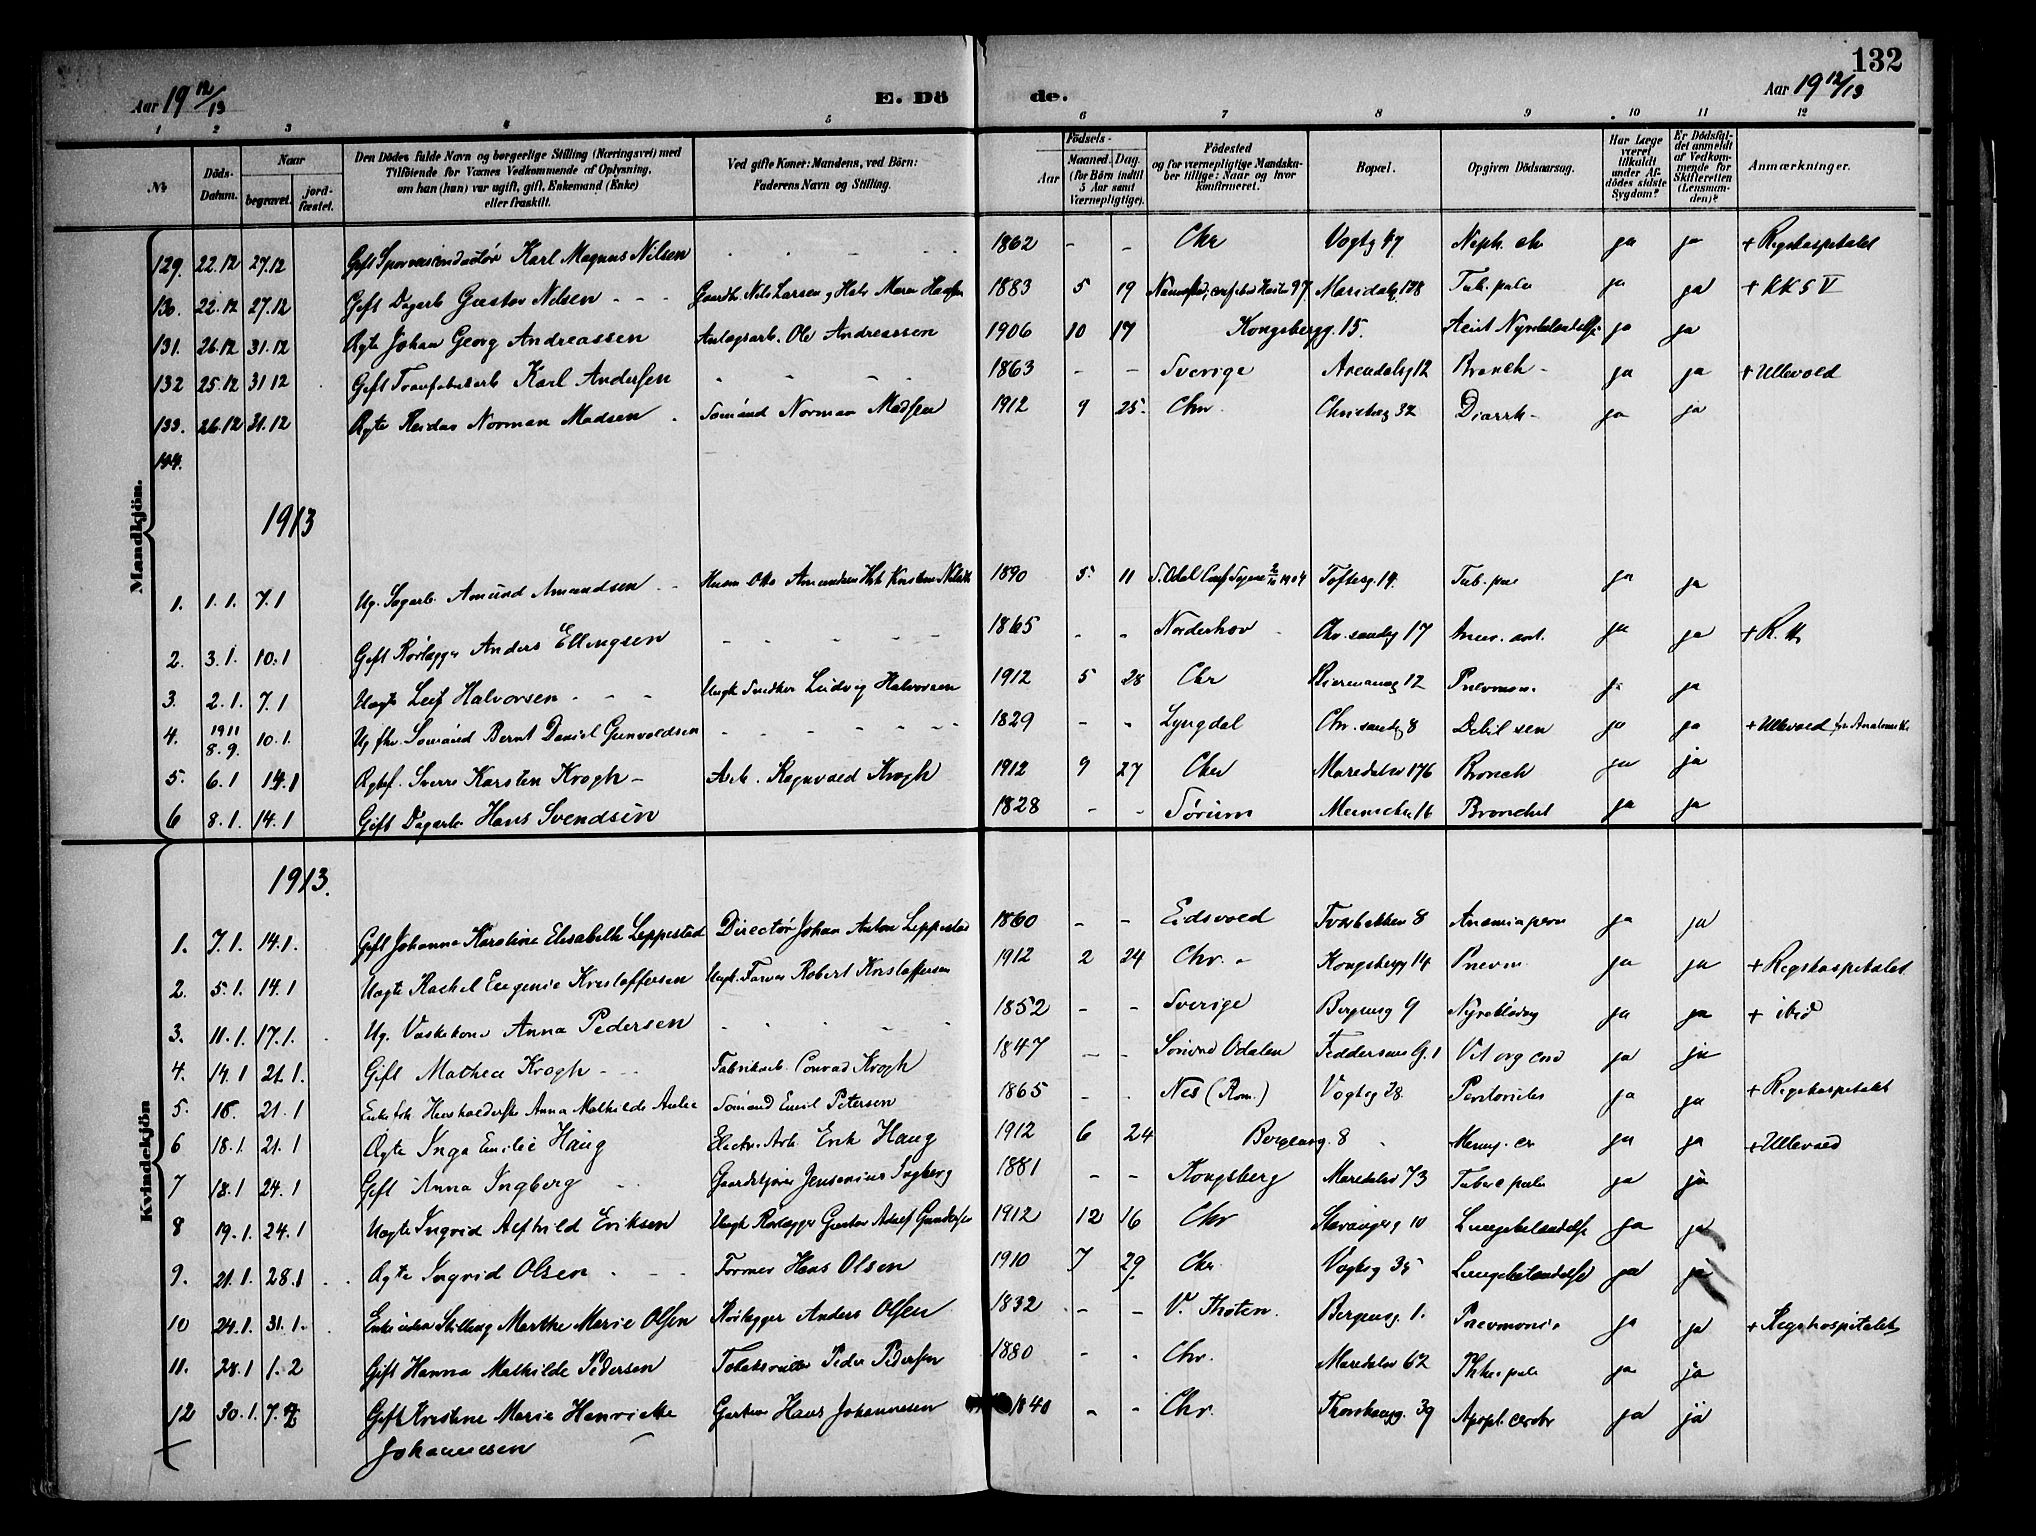 132
Aar 19 12/13
E. Dö de.
Aar 19 12/13
1 2 3 4 5 6 7 8 9 10 11 12
№
Döds-Datum.
Naar begravet. jord-fæstet.
Den Dödes fulde Navn og borgerlige Stilling (Næringsvei) med Tilföiende for Voxnes Vedkommende af Oplysning, om han (hun) var ugift, gift, Enkemand (Enke) eller fraskilt.
Ved gifte Koner: Mandens, ved Börn: Faderens Navn og Stilling.
Födsels-
Aar
Maaned. Dag. (for Börn indtil 5 Aar samt Værnepligtige).
Födested og for værnepligtige Mandskaber tillige: Naar og hvor konfirmeret.
Bopæl.
Opgiven Dödsaarsag.
Har Læge været tilkaldt under Afdödes sidste Sygdom?
Er Dödsfaldet anmeldt af Vedkommende for Skifteretten (Lensmanden)?
Anmærkninger.
Mandkjön.
129. 22.12 27.12 Gift Karl Magnus Nilsen - - - 1862 - - Chr Vogtg 47 Neph. ch ja ja + Rigshospitalet
130. 22.12 27.12 Gift Dagarb Gustav Nilsen - - - Gaardbr. Nils Larsen 1883 5 19 Maridalsv 178 Tub. pulm ja ja + KKSV
131. 26.12 31.12 Ægte Johan Georg Andreassen Anlægsarb. Ole Andreassen 1906 10 17 Kongsbergg. 15. Acut Nyrebetændelse ja ja
132 25.12 31 12 Gift Karl Andersen - - - - 1863 - - Sverige Arendalsg 12 Bronch - ja ja + Ullevold
133. 26.12 31.12 Ægte Reidar Norman Madsen Sömand Norman Madsen 1912 9 25. Chr. 32 Diarrh - ja ja
1913
1. 1.1. 7.1 Ug. Amund Amundsen - - 1890 5 11 Tofteg. 14. Tub. pul ja ja
2. 3.1. 10.1 Gift Rørlægger Anders Ellingsen - - - - 1865 - - Norderhov Chr. sandg 17 Aneur. aort. ja ja + R. H.
3. 2.1. 7.1 Uægte Leif Halvorsen - - - Ungk Snedker Ludvig Halvorsen 1912 5 28 Chr 12 Pnevmon. ja ja
4. 1911 8.9. 10.1. Ug Sömand Bernt Daniel Gunvaldsen - - - - - 1829 - - Lyngdal Chr. sandg 8 Debil sen ja ja + Ullevold
5. 6.1 14.1 Ægtef. Sverre Karsten Krogh - Arb. Ragnvald Krogh 1912 9 27 Chr Maridalsv 176 Bronch ja ja
6 8.1. 14.1 Gift Dagarb Hans Svendsen 1828 - - Sørum 16 Bronchit ja ja
Kvindekjön
1913.
1. 7.1. 14.1. Gift Johanna Karoline Elisabeth Leppestad Directør Johan Anton Leppestad 1860 - - Eidsvold 8 Anæmia pern ja ja
2. 5.1. 14.1 Uægte Rachel Eugenie Kristoffersen Ungk. Farver Robert Kristoffersen 1912 2 24 Chr. Kongsbergg 14 Pnevm ja ja + Rigshospitalet
3. 11.1. 17.1. Ug. Vaskekone Anna Pedersen - - - - - 1852 - - Sverige Bergensg 9 ja ja + ibid
4. 14.1 21.1. Gift Mathea Krogh - - - Fabrikarb. Conrad Krogh 1847 - - Søndre Odalen Feddersens G. 1 Vit org cord ja ja
5. 15. 21.1 Anna Mathilde Sömand Emil Petersen 1865 - - Nes (Rom.) Vogtsg 28 ja ja + Rigshospitalet
6 18.1 21.1 Ægte Inga Emilie Haug Electr. Arb Erik Haug 1912 6 24 Bergensg. 8 Mening. cr ja ja + Ullevold
7 18.1 24.1 Gift Anna Ingberg - - Jensenius Ingberg 1881 - - Kongsberg Maridalsv 73 Tuberc pulm ja ja
8 19.1. 24.1 Uægte Ingrid Alfhild Eriksen Ungk Rørlægger Gustav Adolf Gundersen 1912 12 16 Chr Stavangerg 10 Lungebetændelse ja ja
9. 21.1. 28.1 Ægte Ingrid Olsen - - - Former Hans Olsen 1910 7 29 Chr. Vogtsg 35 Lungebetændelse ja ja
10 24.1. 31.1. Enke uden Stilling Marthe Marie Olsen Rørlægger Anders Olsen 1832 - - V. Thoten. Bergensg. 1. Pnevmonie ja ja + Rigshospitalet
11. 28.1 1.2 Gift Hanna Mathilde Pedersen Peder Pedersen 1880 - - Chr. Maridalsv 62 Phthis pulm ja ja
12 30.1. 7.2 Gift Kristine Marie Henriette Johannesen Gartner Hans Johannesen 1840 - - Chr. 39 Apopl. cerebr ja ja